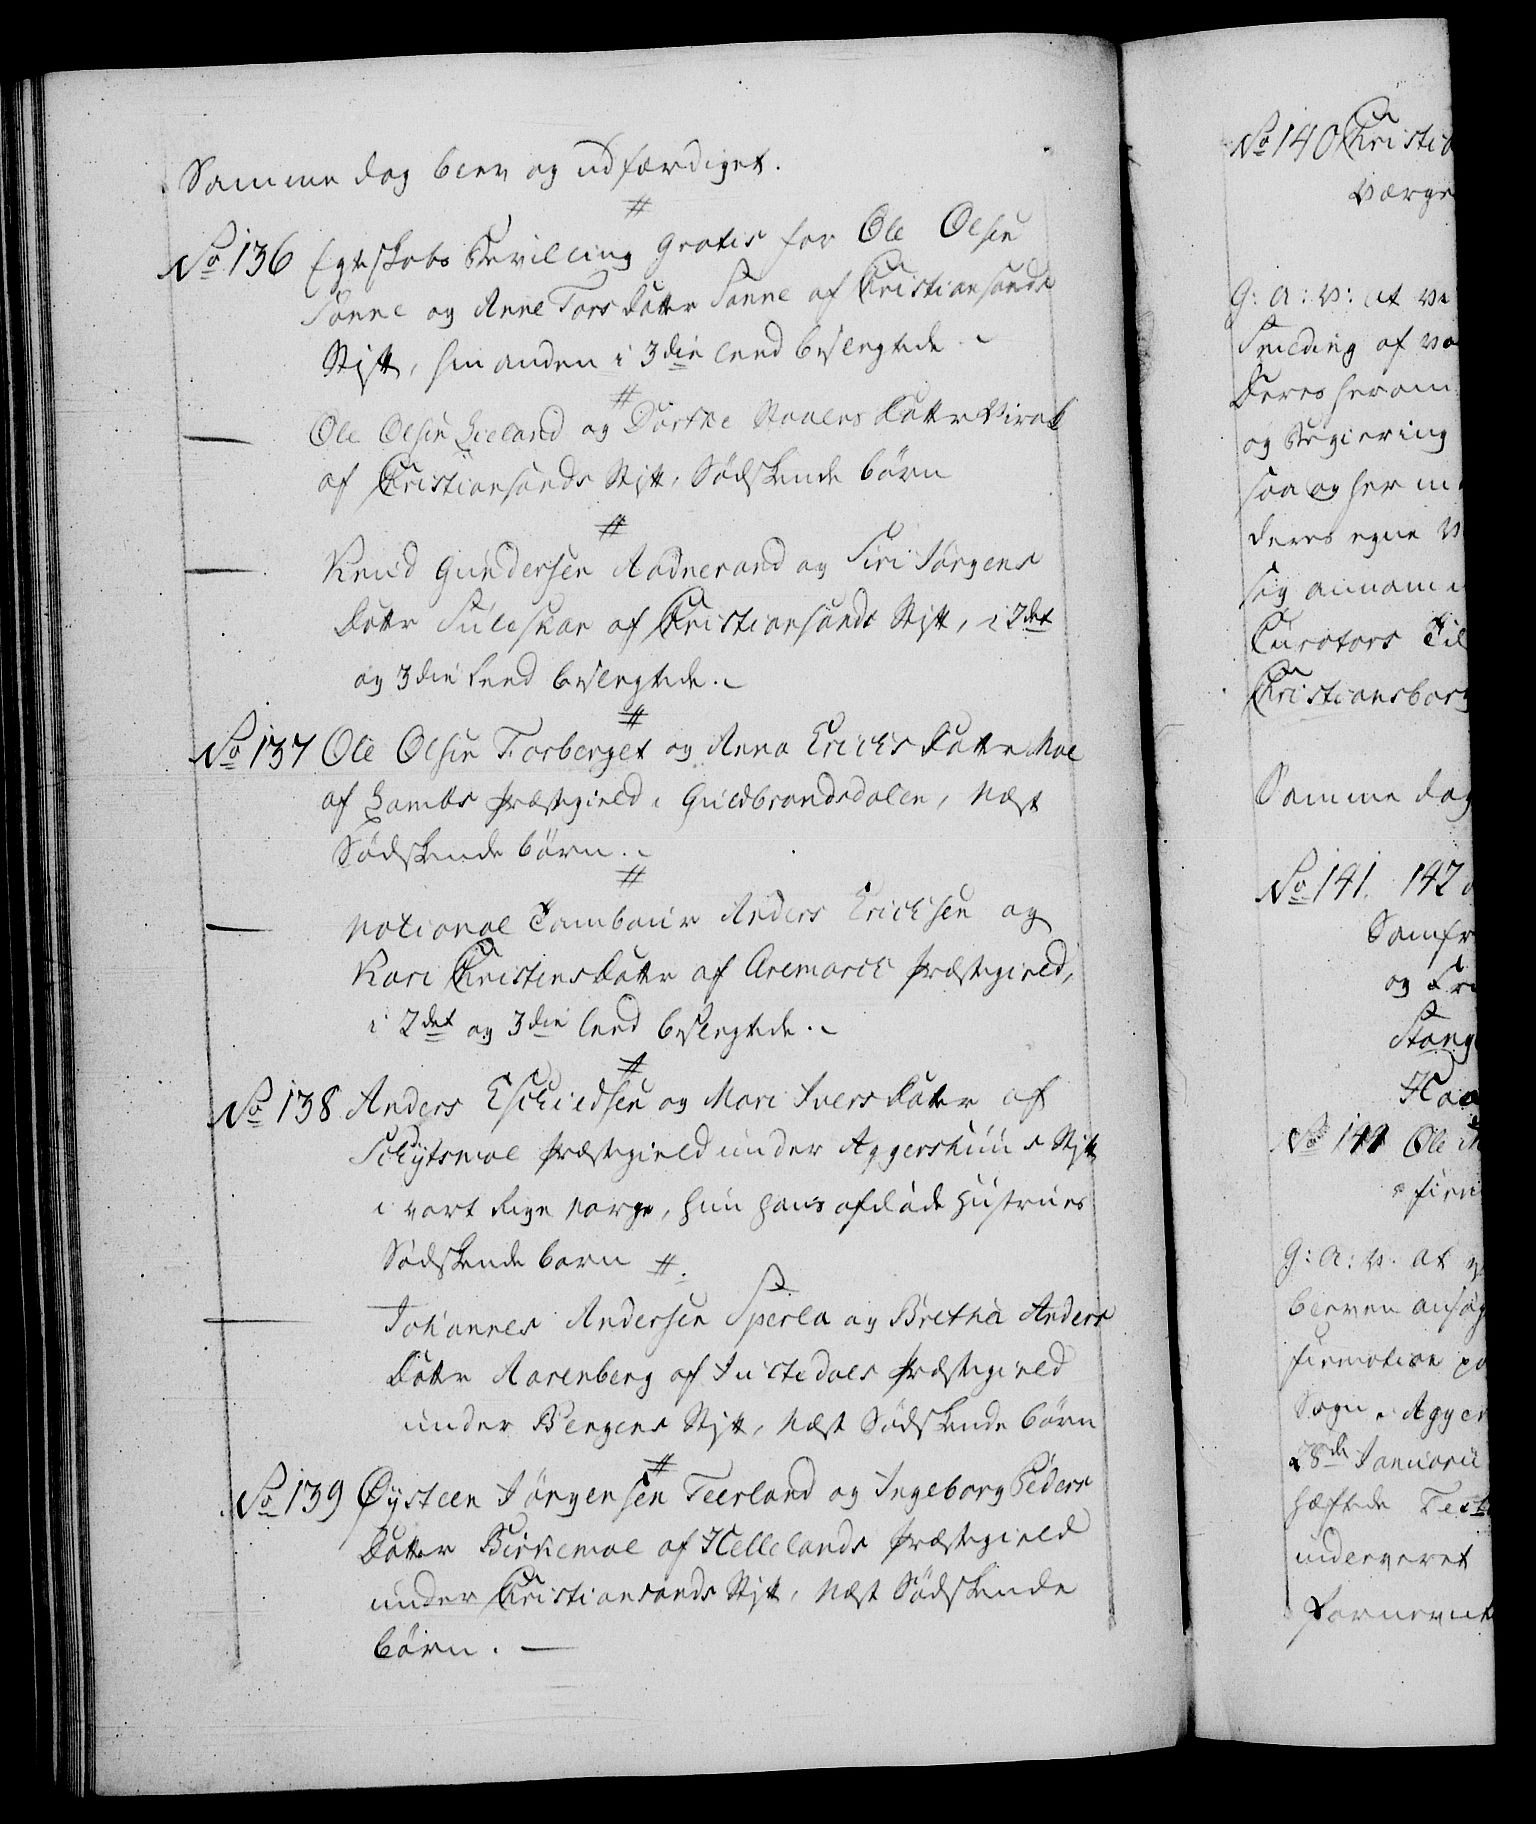 Samme dag blev og udfærdiget.
#
No 136 Egteskabs Bevilling gratis for Ole Olsen
Sanne og Anne Tors datter Sanne af Christiansands
Stift, hinanden i 3die leed beslegtede.
#
— Ole Olsen Lieland og Dorthe Staales datter Virak
af Christiansands Stift, Södskende börn
#
— Knud Gundersen Aadnerand og Siri Jörgens
datter Suleskar af Christiansands Stift, i 2det
og 3die leed beslegtede.
#
No 137 Ole Olsen Forberget og Anna Erichs datter Moe
af Lambs præstegield i Guldbrandsdalen, næst
Södskende börn.
#
— National Tambour Anders Erichsen og
Kari Christens datter af Aremarck præstegield,
i 2det og 3die leed beslegtede.
#
No 138 Anders Eschildsen og Mari Ivers datter af
Schytsmoe præstegield under Aggershuus Stift
i vort Rige Norge, hun hans afdöde Hustrues
Södskende barn #.
— Johannes Andersen Sperla og Brethe Anders
datter Aarenberg af Justedals præstegield
under Bergens Stift, næst Södskende börn
#
No 139 Øysteen Jörgensen Teerland og Ingeborg Peders
datter Birkemoe af Hellelands præstegield
under Christiansands Stift, næst Södskende
börn. —
No 140 Christi
værge
G: A: V: at v
deres herom
og Regiering
saa og her
deres egne
sig annam
Curators Til
Christiansborg
Samme dag
No 141. 142
Samfr
og
Stang
No 144 Ole
G: A: V. at
bleven ansög
firmation
Sogn i Agger
28de Januarii
hæftede Test
underveret
fornevnte